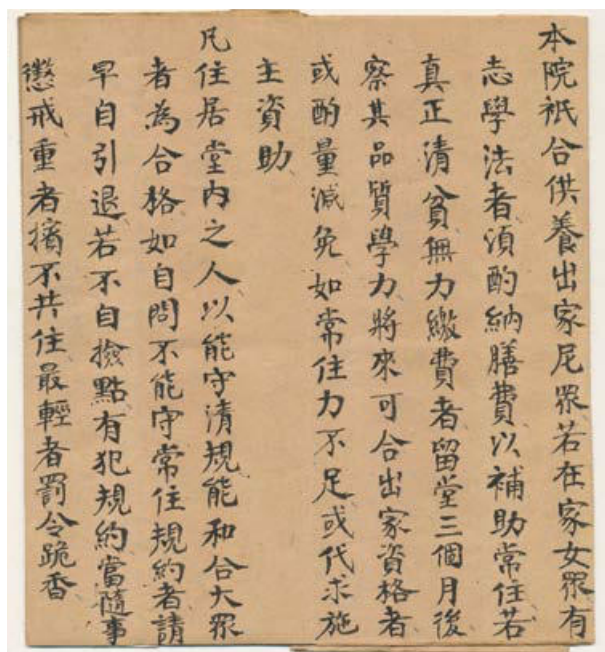 本院祇合供養出家尼眾若在家女眾有
志學法者須酌納膳費以補助常住若
真正清貧無力繳費者留堂三個月後
察其品質學力將來可合出家資格者
或酌量減免如常住力不足或代求施
主資助
凡住居堂內之人以能守清規能和合大眾
者為合格如自問不能守常住規約者請
早自引退若不自撿點有犯規約當隨事
懲戒重者擯不共住最輕者罰令跪香